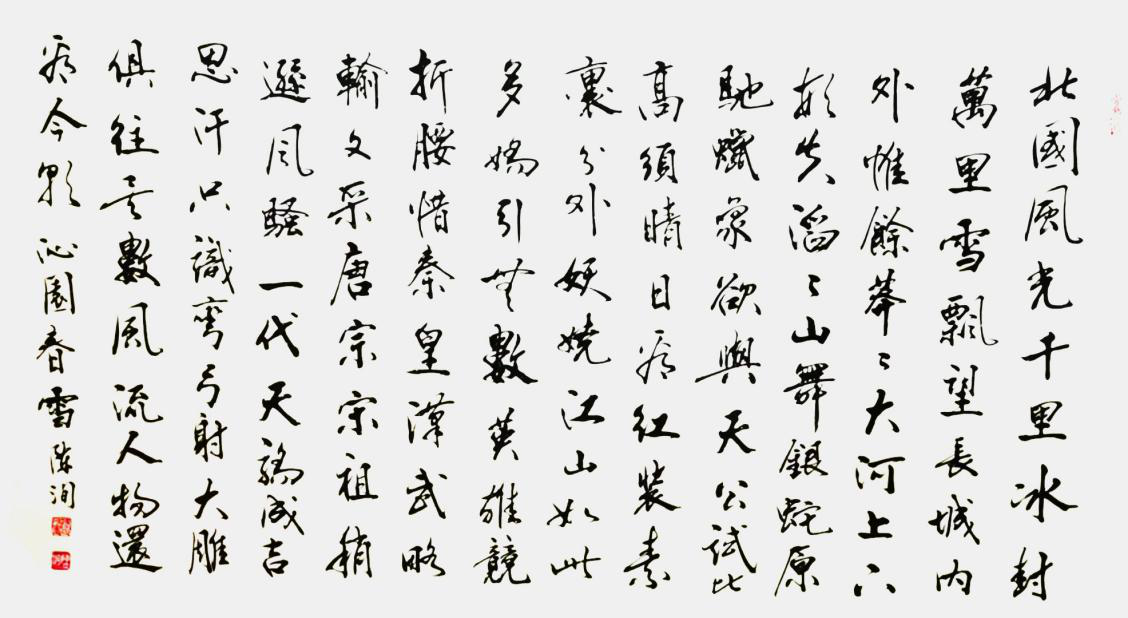 北國風光千里冰封
萬里雪飄望長城內
外惟餘莽〻大河上下
頓失滔〻山舞銀蛇原
馳蠟象欲與天公試比
高須晴日看紅裝素
裹分外妖嬈江山如此
多嬌引無數英雄競
折腰惜秦皇漢武略
輸文采唐宗宋祖稍
遜風騷一代天驕成吉
思汗只識彎弓射大雕
俱往矣數風流人物還
看今朝 沁園春雪 陈洵